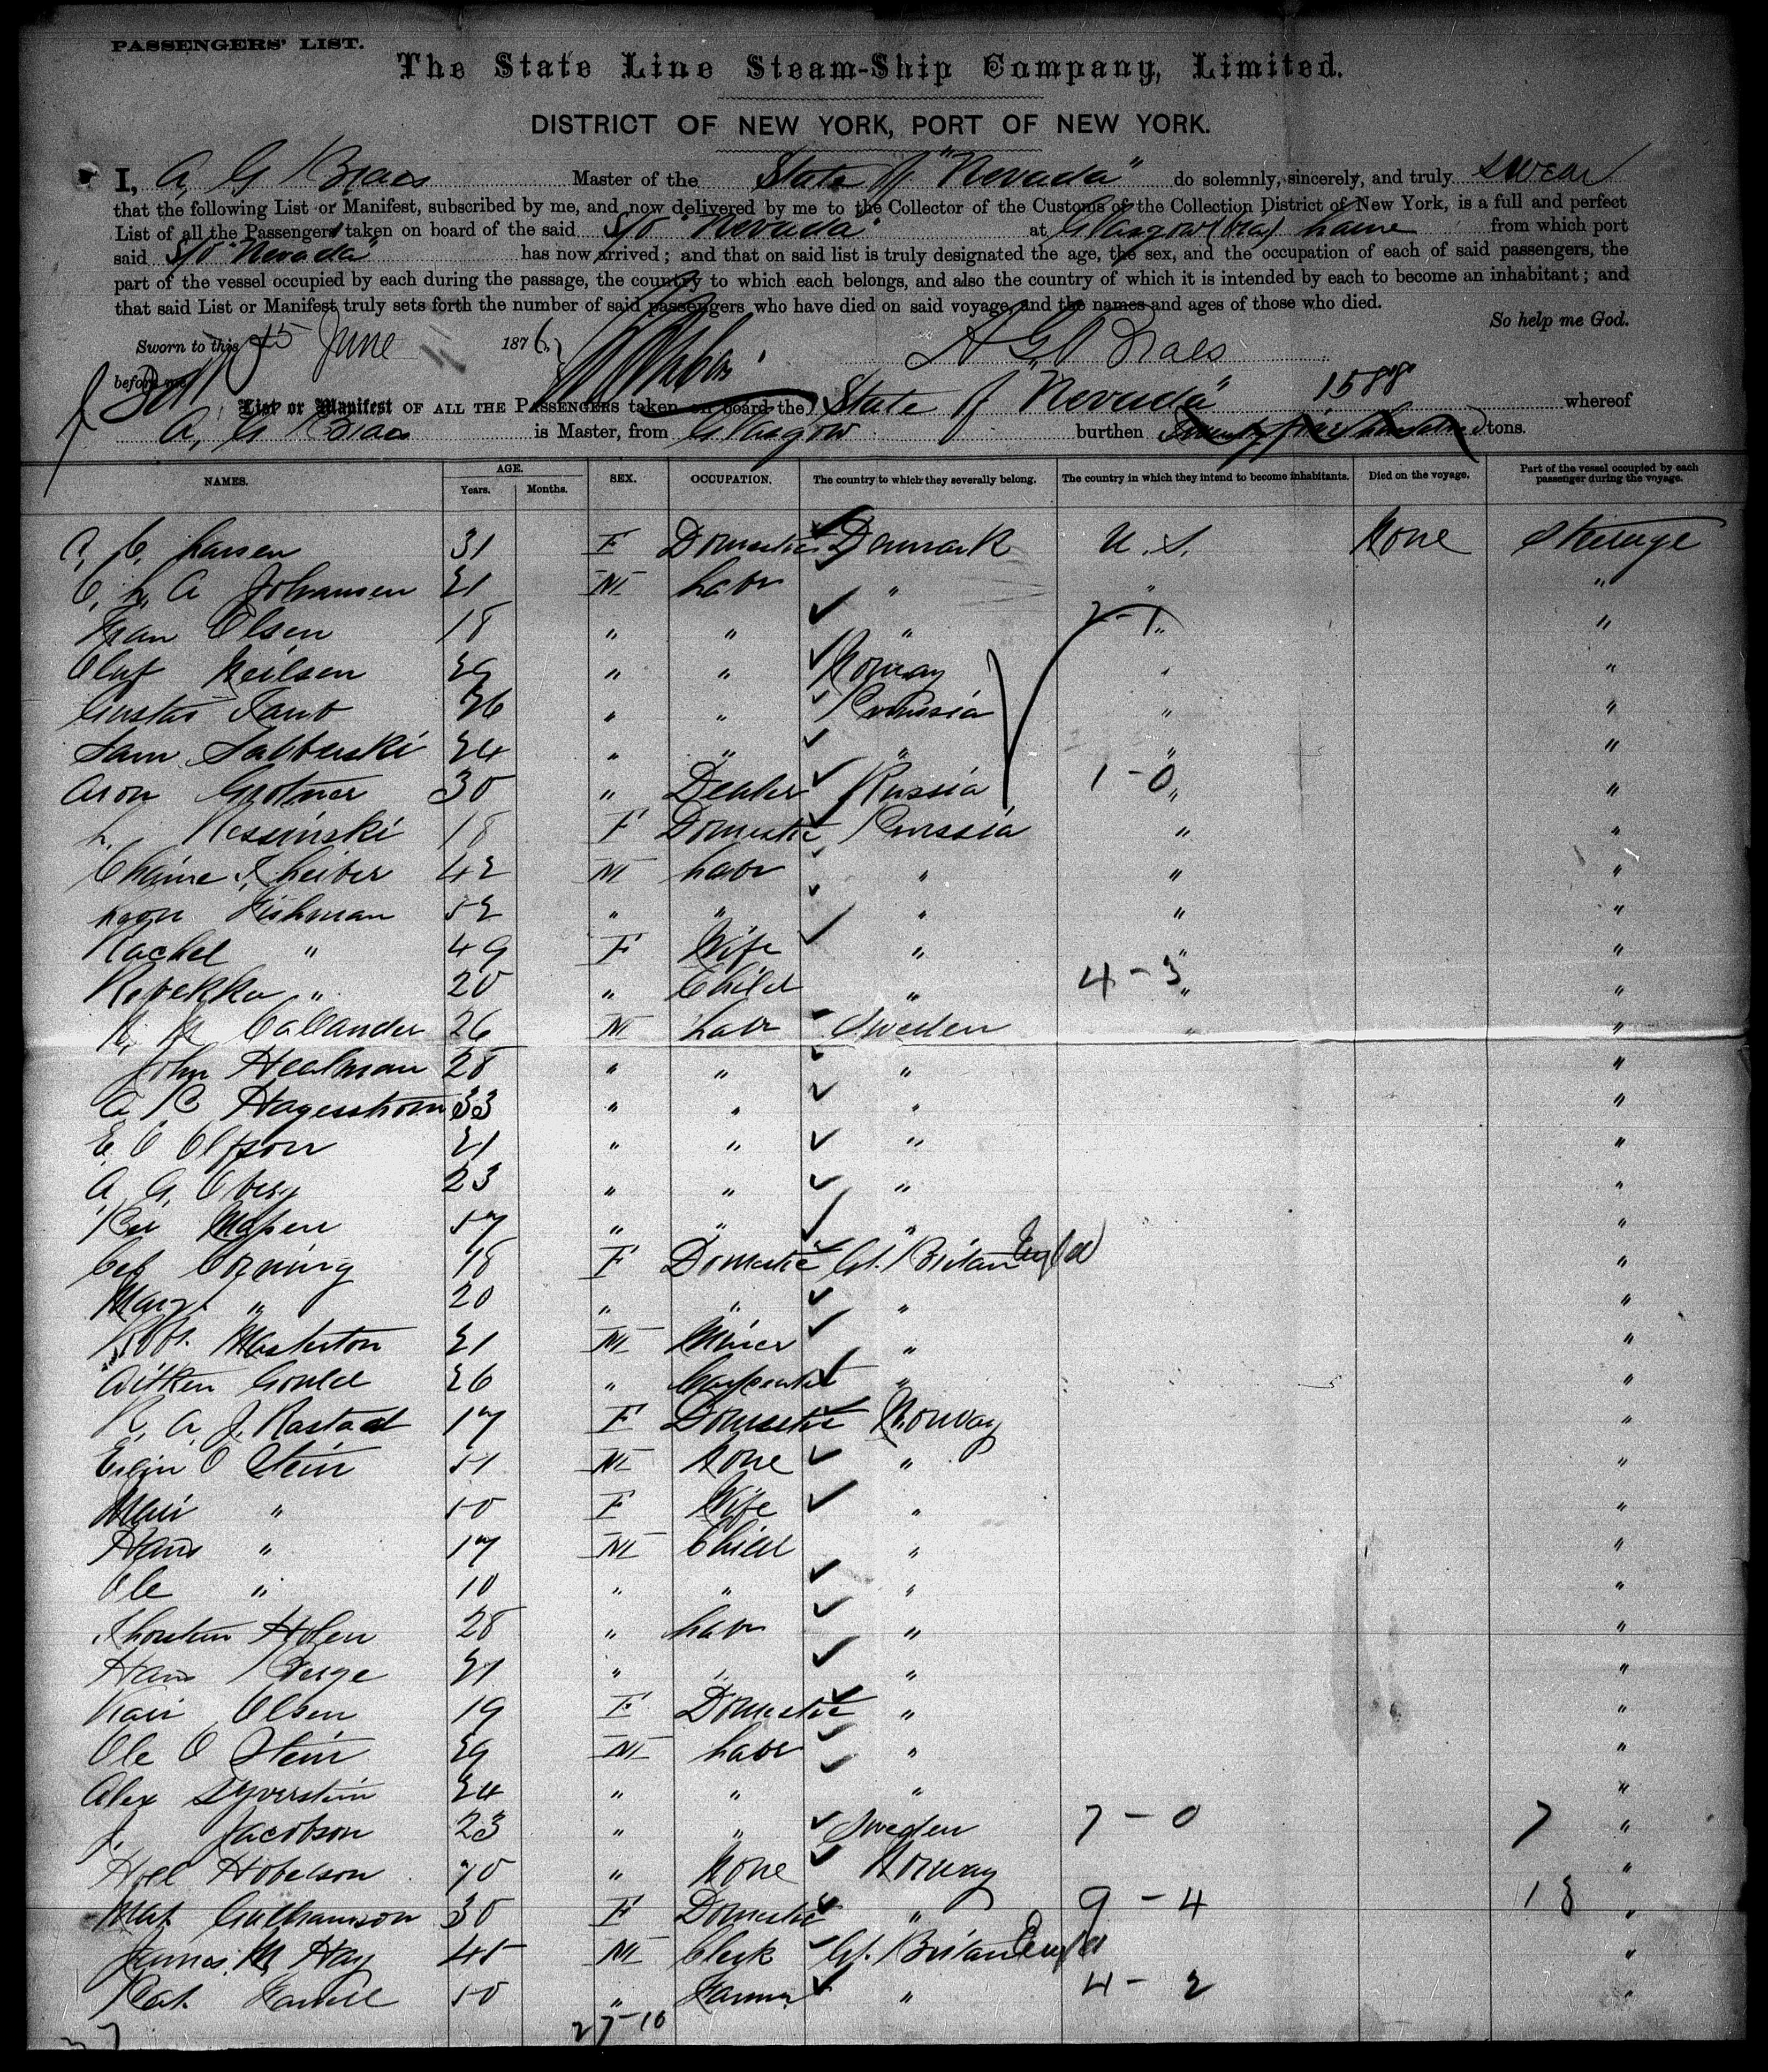 PASSENGERS' LIST.
The State Line Steam-Ship Company, Limited.
DISTRICT OF NEW YORK, PORT OF NEW YORK.
I, A, G Braes Master of the State of "Nevada" do solemnly, sincerely, and truly swear
that the following List or Manifest, subscribed by me, and now delivered by me to the Collector of the Customs of the Collection District of New York, is a full and perfect
List of all the Passengers taken on board of the said S/S "Nevada" at Glasgow (via) Larne from which port
said S/S "Nevada" has now arrived; and that on said list is truly designated the age, the sex, and the occupation of each of said passengers, the
part of the vessel occupied by each during the passage, the country to which each belongs, and also the country of which it is intended by each to become an inhabitant; and
that said List or Manifest truly sets forth the number of said passengers who have died on said voyage, and the names and ages of those who died.
So help me God.
Sworn to this 15 June 1876
before me A G Braes
List or Manifest OF ALL THE PASSENGERS taken on board the State of "Nevada" 1588 whereof
A, G Braes is Master, from Glasgow burthen tons.
NAMES. AGE. Years. Months. SEX. OCCUPATION. The country to which they severally belong. The country in which they intend to become inhabitants. Died on the voyage. Part of the vessel occupied by each passenger during the voyage.
31 F Domestic Denmark U.S. None Steerage
C, L, A Johansen 21 M Labr " " "
Olsen 18 " " " 2-1 "
Olaf Neilsen 29 " " Norway " "
Gustav 26 " " Prussia " "
Sam 24 " " " " "
Aron Grotner 30 " Dealer Russia 1-0 " "
L, Ressinski 18 F Domestic Prussia " "
42 M Labr " " "
Leon Fishman 52 " " " " "
Rachel " 49 F Wife " " "
Rebekka " 20 " Child " 4-3 " "
Callander 26 M Labr Sweden " "
John Heelman 28 " " " "
A B Hagesstrom 33 " " " "
E, O Olfson 21 " " " "
A, G, Oberg 23 " " " "
Per 57 " " " "
Corning 18 F Domestic Gt. Britain Engld "
Mary " 20 " " " "
Robt. Masterton 21 M Miner " "
Aitken Gould 26 " Carpenter " "
R, A, J, Rastad 17 F Domestic Norway "
O Stein 51 M None " "
Mari " 50 F Wife " "
Hans " 17 M Child " "
Ole " 10 " " " "
Thorsten Holen 28 " Labr " "
Hans Berge 21 " " " "
Kari Olsen 19 F Domestic " "
Ole O Stein 29 M Labr " "
Alex Syverstein 24 " " " "
J, Jacobson 23 " " Sweden 7-0 7 "
Hobelson 70 " None Norway "
Mat 30 F Domestic " 9-4 18 "
James, M, Hay 45 M Clerk Gt. Britain Engld "
Pat. Farrell 50 " Farmer " 4-2 "
27-10
37